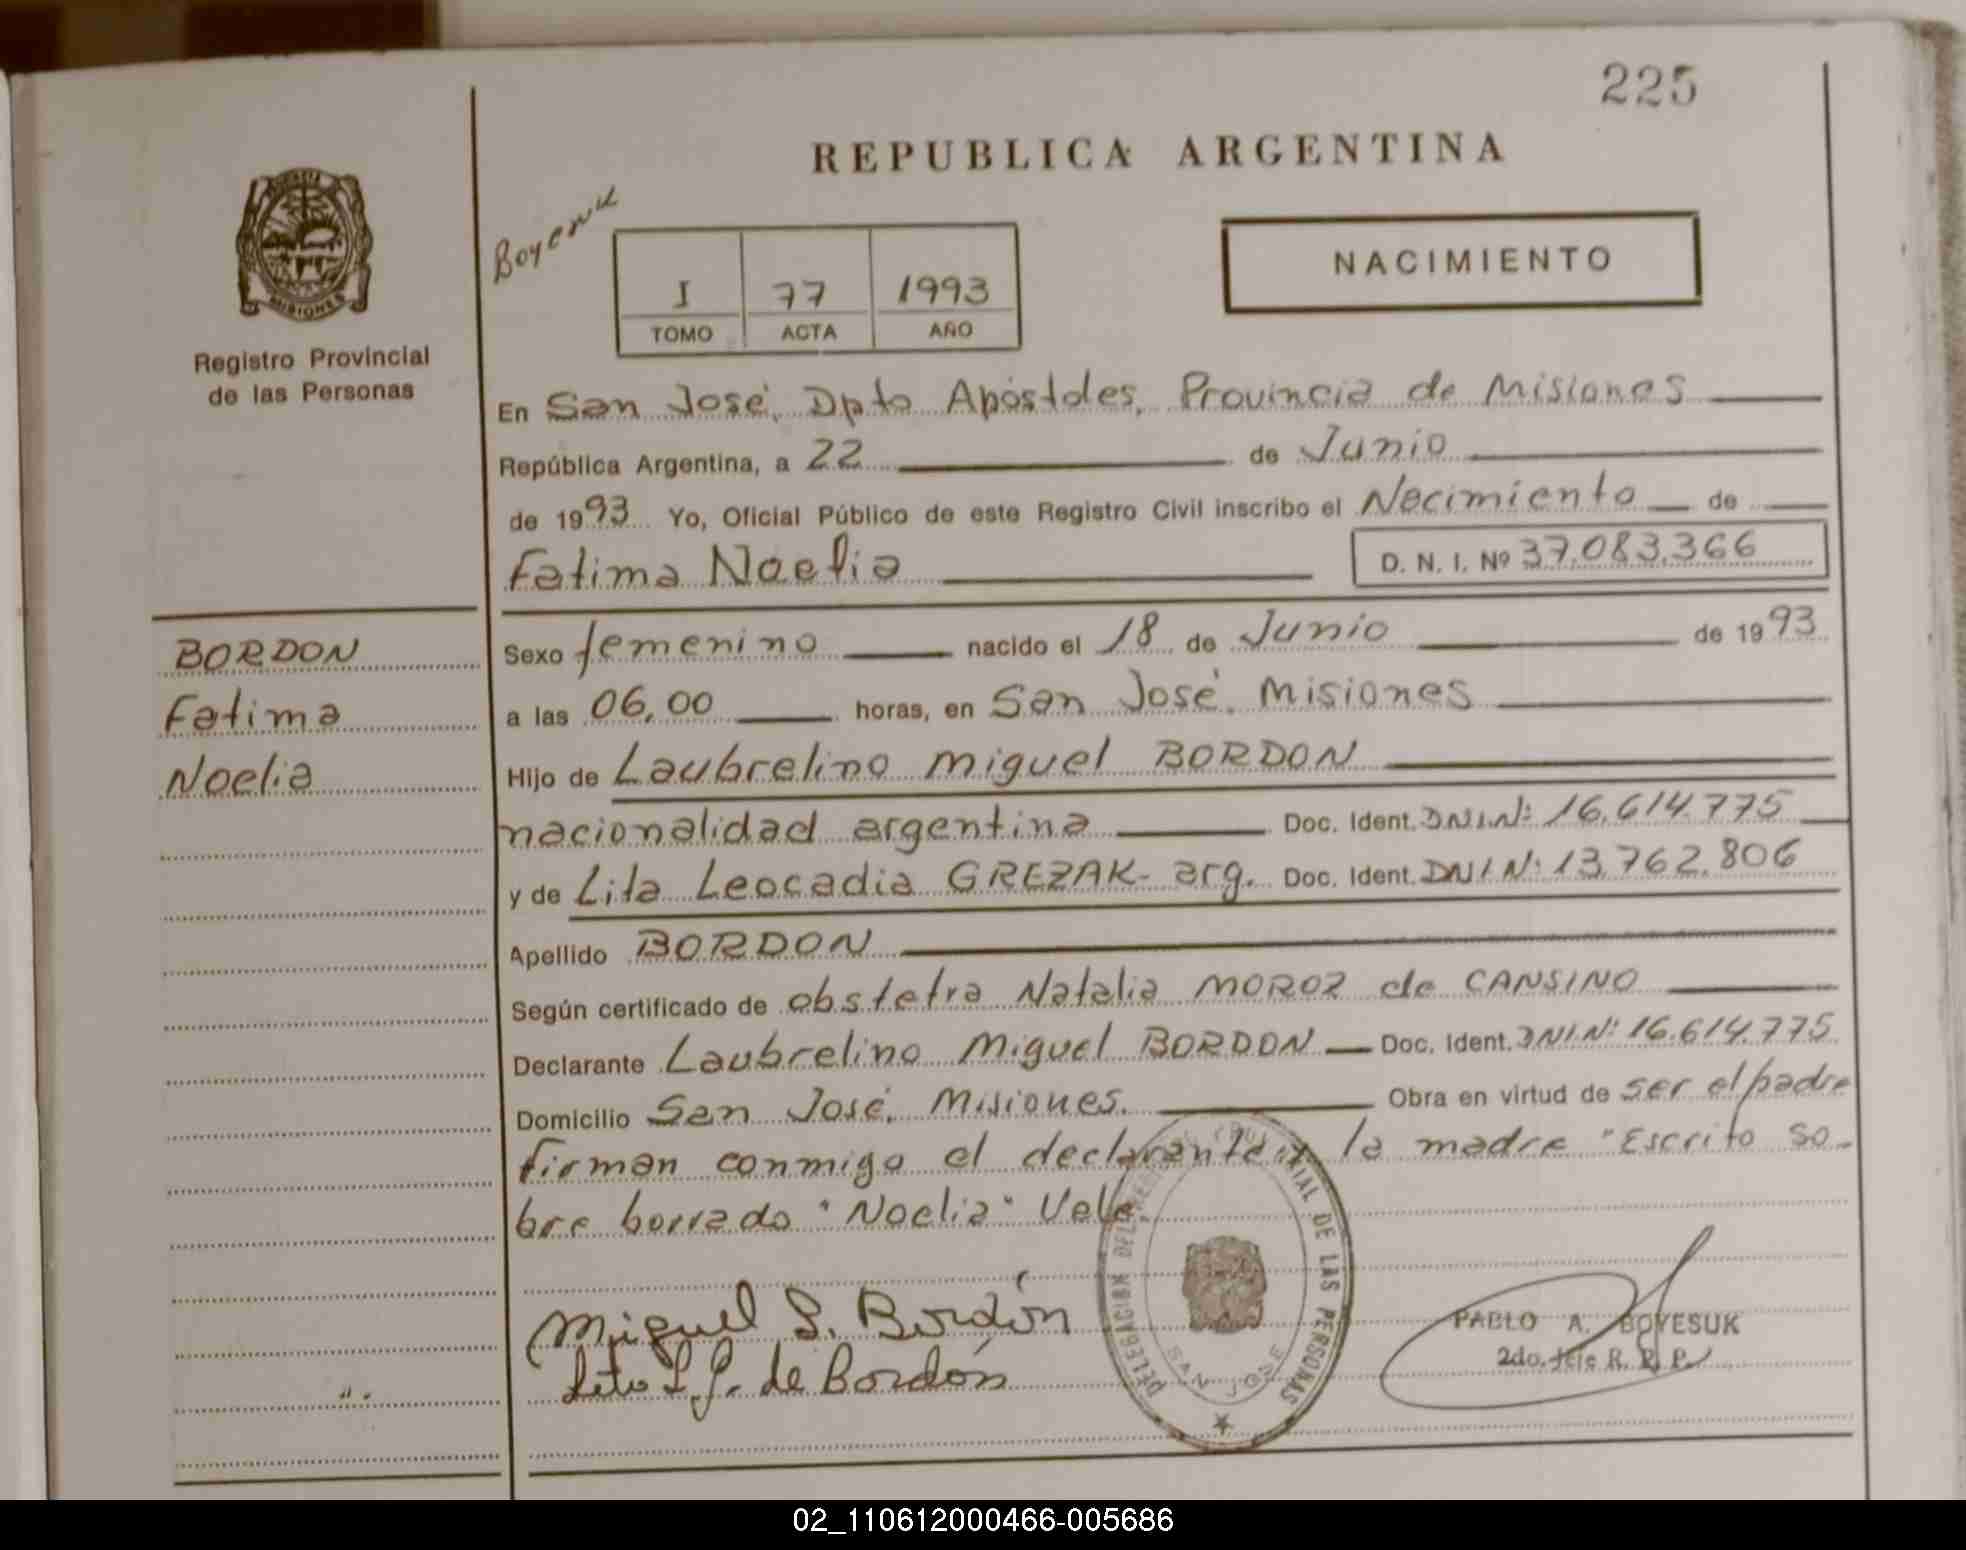 225
REPUBLICA ARGENTINA
MISIONES
Registro Provincial
de las Personas
NACIMIENTO
I 77 1993
TOMO ACTA AÑO
En San José, Dpto Apóstoles, Provincia de Misiones
República Argentina, a 22 de Junio
de 1993 Yo, Oficial Público de este Registro Civil inscribo el Nacimiento de
Fatima Noelia D. N. I. Nº 37.083.366
BORDON
Fatima
Noelia
Sexo femenino nacido el 18 de Junio de 1993
a las 06,00 horas, en San José, Misiones
Hijo de Laubrelino Miguel BORDON
nacionalidad argentina Doc. Ident. DNI.Nº: 16.614.775
y de Lita Leocadia GREZAK- arg. Doc. Ident. DNI Nº: 13.762.806
Apellido BORDON
Según certificado de obstetra Natalia MOROZ de CANSINO
Declarante Laubrelino Miguel BORDON Doc. Ident. DNI.Nº: 16.614.775
Domicilio San José, Misiones. Obra en virtud de ser el padre
firman conmigo el declarante y la madre "Escrito so-
bre borrado "Noelia" Vale
Miguel L. Bordón
Lita L. G. de Bordón
DELEGACION DEL REGISTRO PROVINCIAL DE LAS PERSONAS
SAN JOSE
PABLO A. BOYESUK
2do. Jefe R. P. P.
02_110612000466-005686